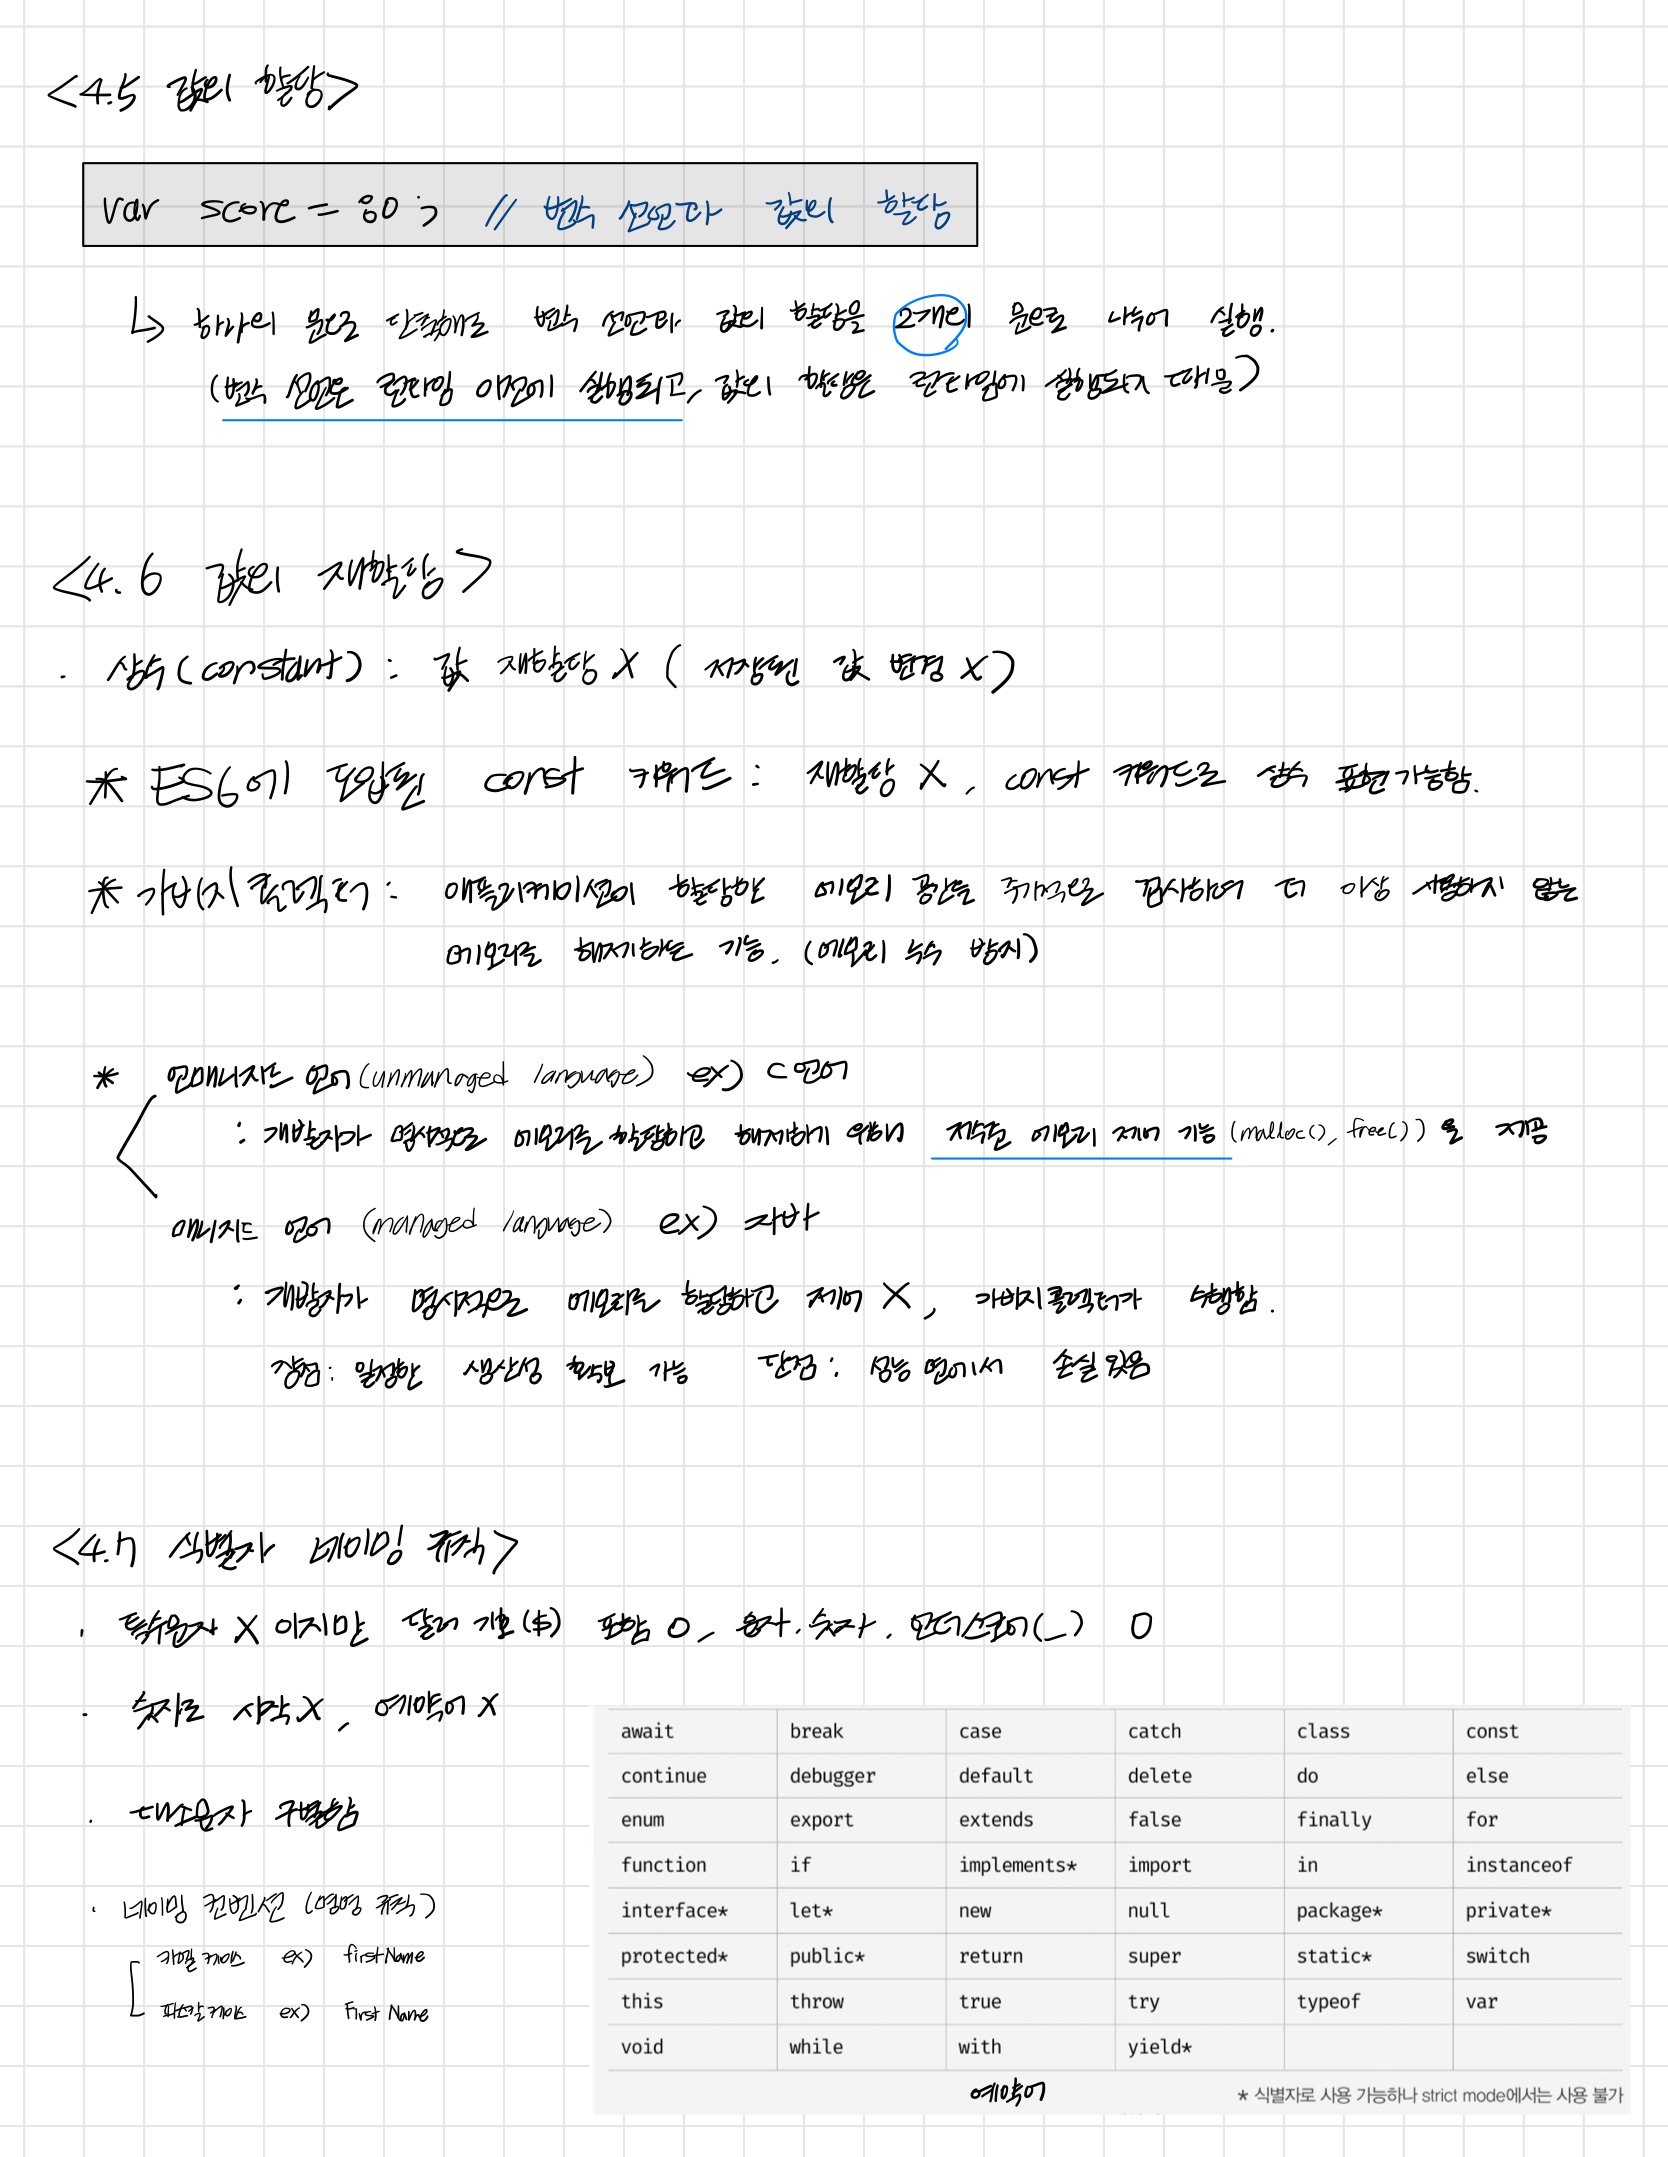 <4.5 값의 할당>
var score = 80; // 변수 선언과 값의 할당
↳ 하나의 문으로 단축해도 변수 선언과 값의 할당을 2개의 문으로 나누어 실행.
(변수 선언은 런타임 이전에 실행되고, 값의 할당은 런타임에 실행되기 때문)
<4.6 값의 재할당>
· 상수(constant) : 값 재할당 X ( 저장된 값 변경 X)
* ES6에 도입된 const 키워드 : 재할당 X, const 키워드로 상수 표현가능함.
* 가비지 콜렉터 : 애플리케이션이 할당한 메모리 공간을 주기적으로 검사하여 더 이상 사용하지 않는
메모리를 해제하는 기능. (메모리 누수 방지)
* 언매니지드 언어(unmanaged language) ex) C언어
: 개발자가 명시적으로 메모리를 할당하고 해제하기 위해 저수준 메모리 제어 기능 (malloc(), free()) 을 제공
매니지드 언어 (managed language) ex) 자바
: 개발자가 명시적으로 메모리를 할당하고 제어 X, 가비지콜렉터가 수행함.
장점 : 일정한 생산성 확보 가능 단점 : 성능 면에서 손실 있음
<4.7 식별자 네이밍 규칙>
· 특수문자 X 이지만 달러 기호($) 포함 O, 문자, 숫자, 언더스코어(_) O
· 숫자로 시작 X, 예약어 X
· 대소문자 구별함
· 네이밍 컨벤션 (명명 규칙)
카멜 케이스 ex) firstName
파스칼 케이스 ex) FirstName
await break case catch class const
continue debugger default delete do else
enum export extends false finally for
function if implements* import in instanceof
interface* let* new null package* private*
protected* public* return super static* switch
this throw true try typeof var
void while with yield*
예약어
* 식별자로 사용 가능하나 strict mode에서는 사용 불가